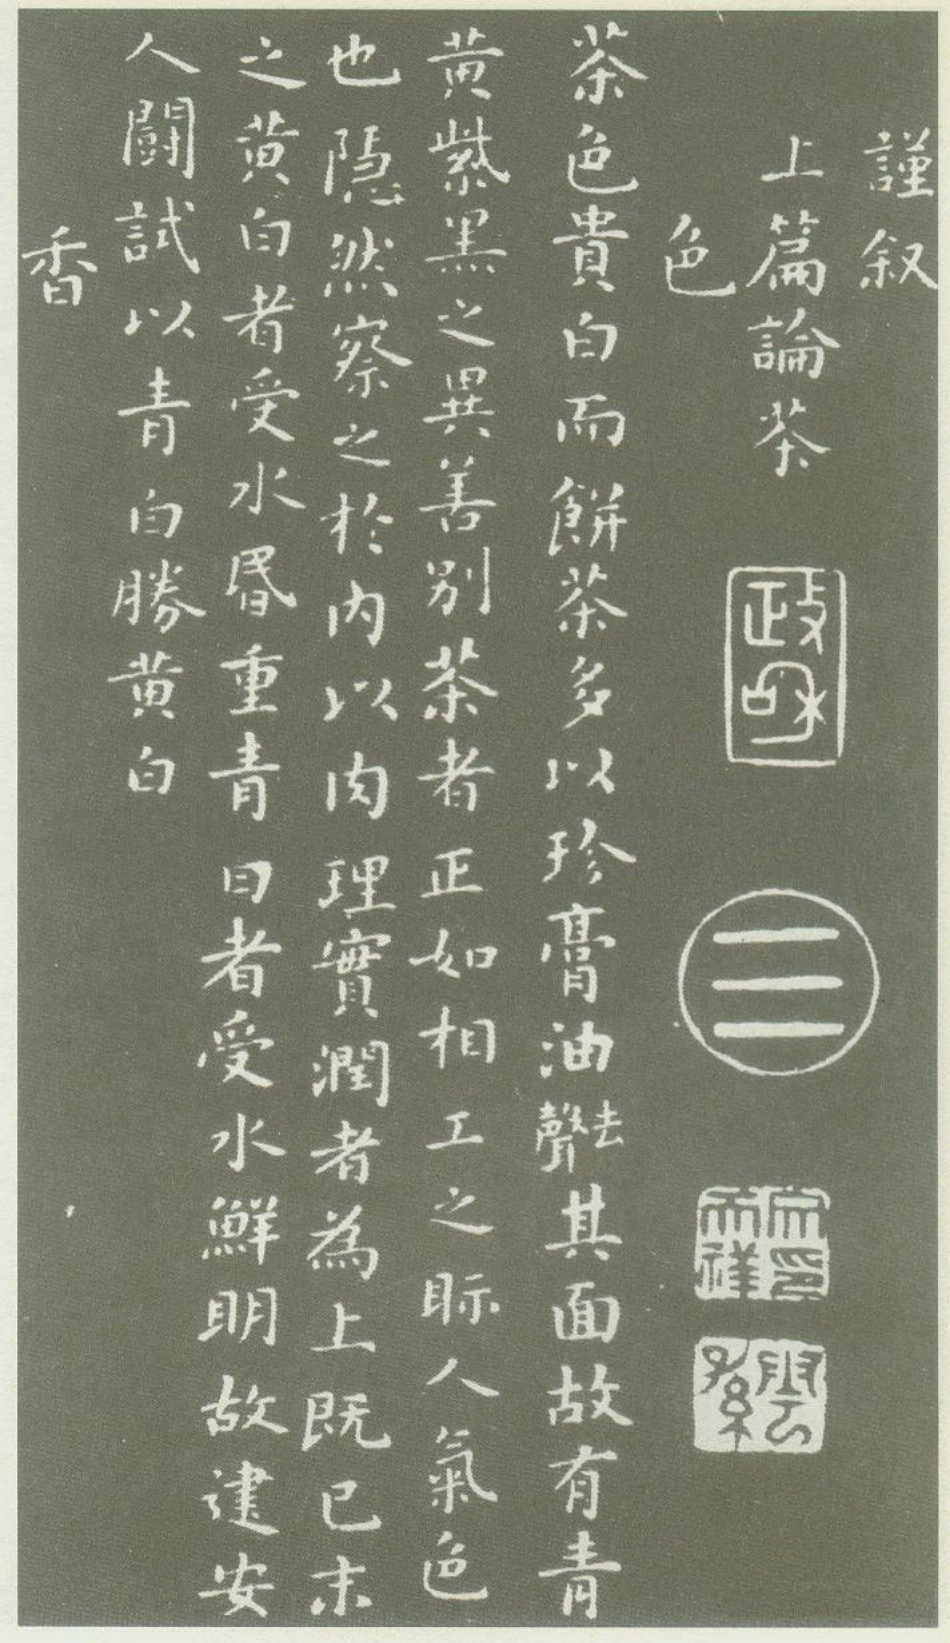 謹叙
上篇論茶
政和
三
色
茶色貴白而餅茶多以珍膏油去聲其面故有青
黄紫黑之異善別茶者正如相工之眎人氣色
也隱然察之於内以肉理實潤者為上既已末
之黄白者受水昬重青白者受水鮮明故建安
人鬭試以青白勝黄白
香